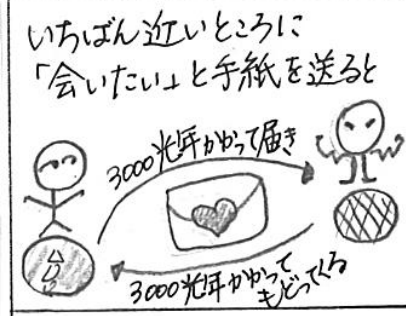 いちばん近いところに
「会いたい」と手紙を送ると
3000光年かかって届き
3000光年かかって
もどってくる